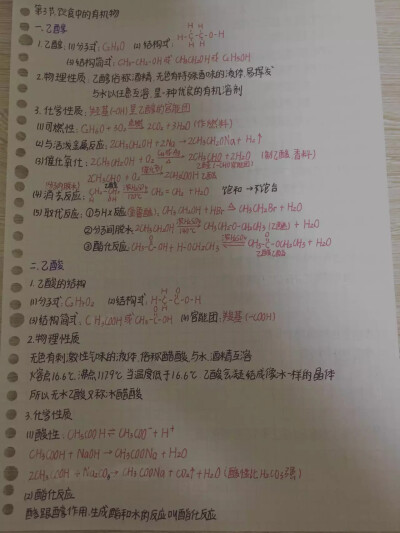 第3节 饮食中的有机物
一.乙醇
1.乙醇:(1)分子式:C₂H₆O (2)结构式:
(3)结构简式:CH₃-CH₂-OH或CH₃CH₂OH或C₂H₅OH
2.物理性质:乙醇俗称酒精,无色有特殊香味的液体,易挥发
与水以任意互溶,是一种优良的有机溶剂
3.化学性质:羟基(-OH)是乙醇的官能团
(1)可燃性:C₂H₆O + 3O₂ 点燃→ 2CO₂ + 3H₂O (作燃料)
(2)与活泼金属反应:2CH₃CH₂OH + 2Na → 2CH₃CH₂ONa + H₂↑
(3)催化氧化:2CH₃CH₂OH + O₂ → 2CH₃CHO + 2H₂O (制乙醛、香料)
2CH₃CHO + O₂ → 2CH₃COOH 乙酸
(4)消去反应: → CH₂=CH₂ + H₂O 饱和→不饱合
(5)取代反应:①与HX反应 CH₃CH₂OH + HBr △→ CH₃CH₂Br + H₂O
②分子间脱水 2CH₃CH₂OH → CH₃CH₂-O-CH₂CH₃(乙醚) + H₂O
③酯化反应 CH₃C-OH + H-OCH₂CH₃ ⇌ CH₃-C-OCH₂CH₃ + H₂O
乙酸乙酯
二.乙酸
1.乙酸的结构
(1)分子式:C₂H₄O₂ (2)结构式:
(3)结构简式:CH₃COOH或CH₃-C-OH (4)官能团:羧基(-COOH)
2.物理性质
无色有刺激性气味的液体,俗称醋酸,与水、酒精互溶
熔点16.6℃,沸点117.9℃,当温度低于16.6℃,乙酸会凝结成像冰一样的晶体
所以无水乙酸又称冰醋酸
3.化学性质
(1)酸性:CH₃COOH ⇌ CH₃COO⁻ + H⁺
CH₃COOH + NaOH → CH₃COONa + H₂O
2CH₃COOH + Na₂CO₃ → CH₃COONa + CO₂↑ + H₂O (酸性比H₂CO₃强)
(2)酯化反应
酸跟醇作用,生成酯和水的反应叫酯化反应